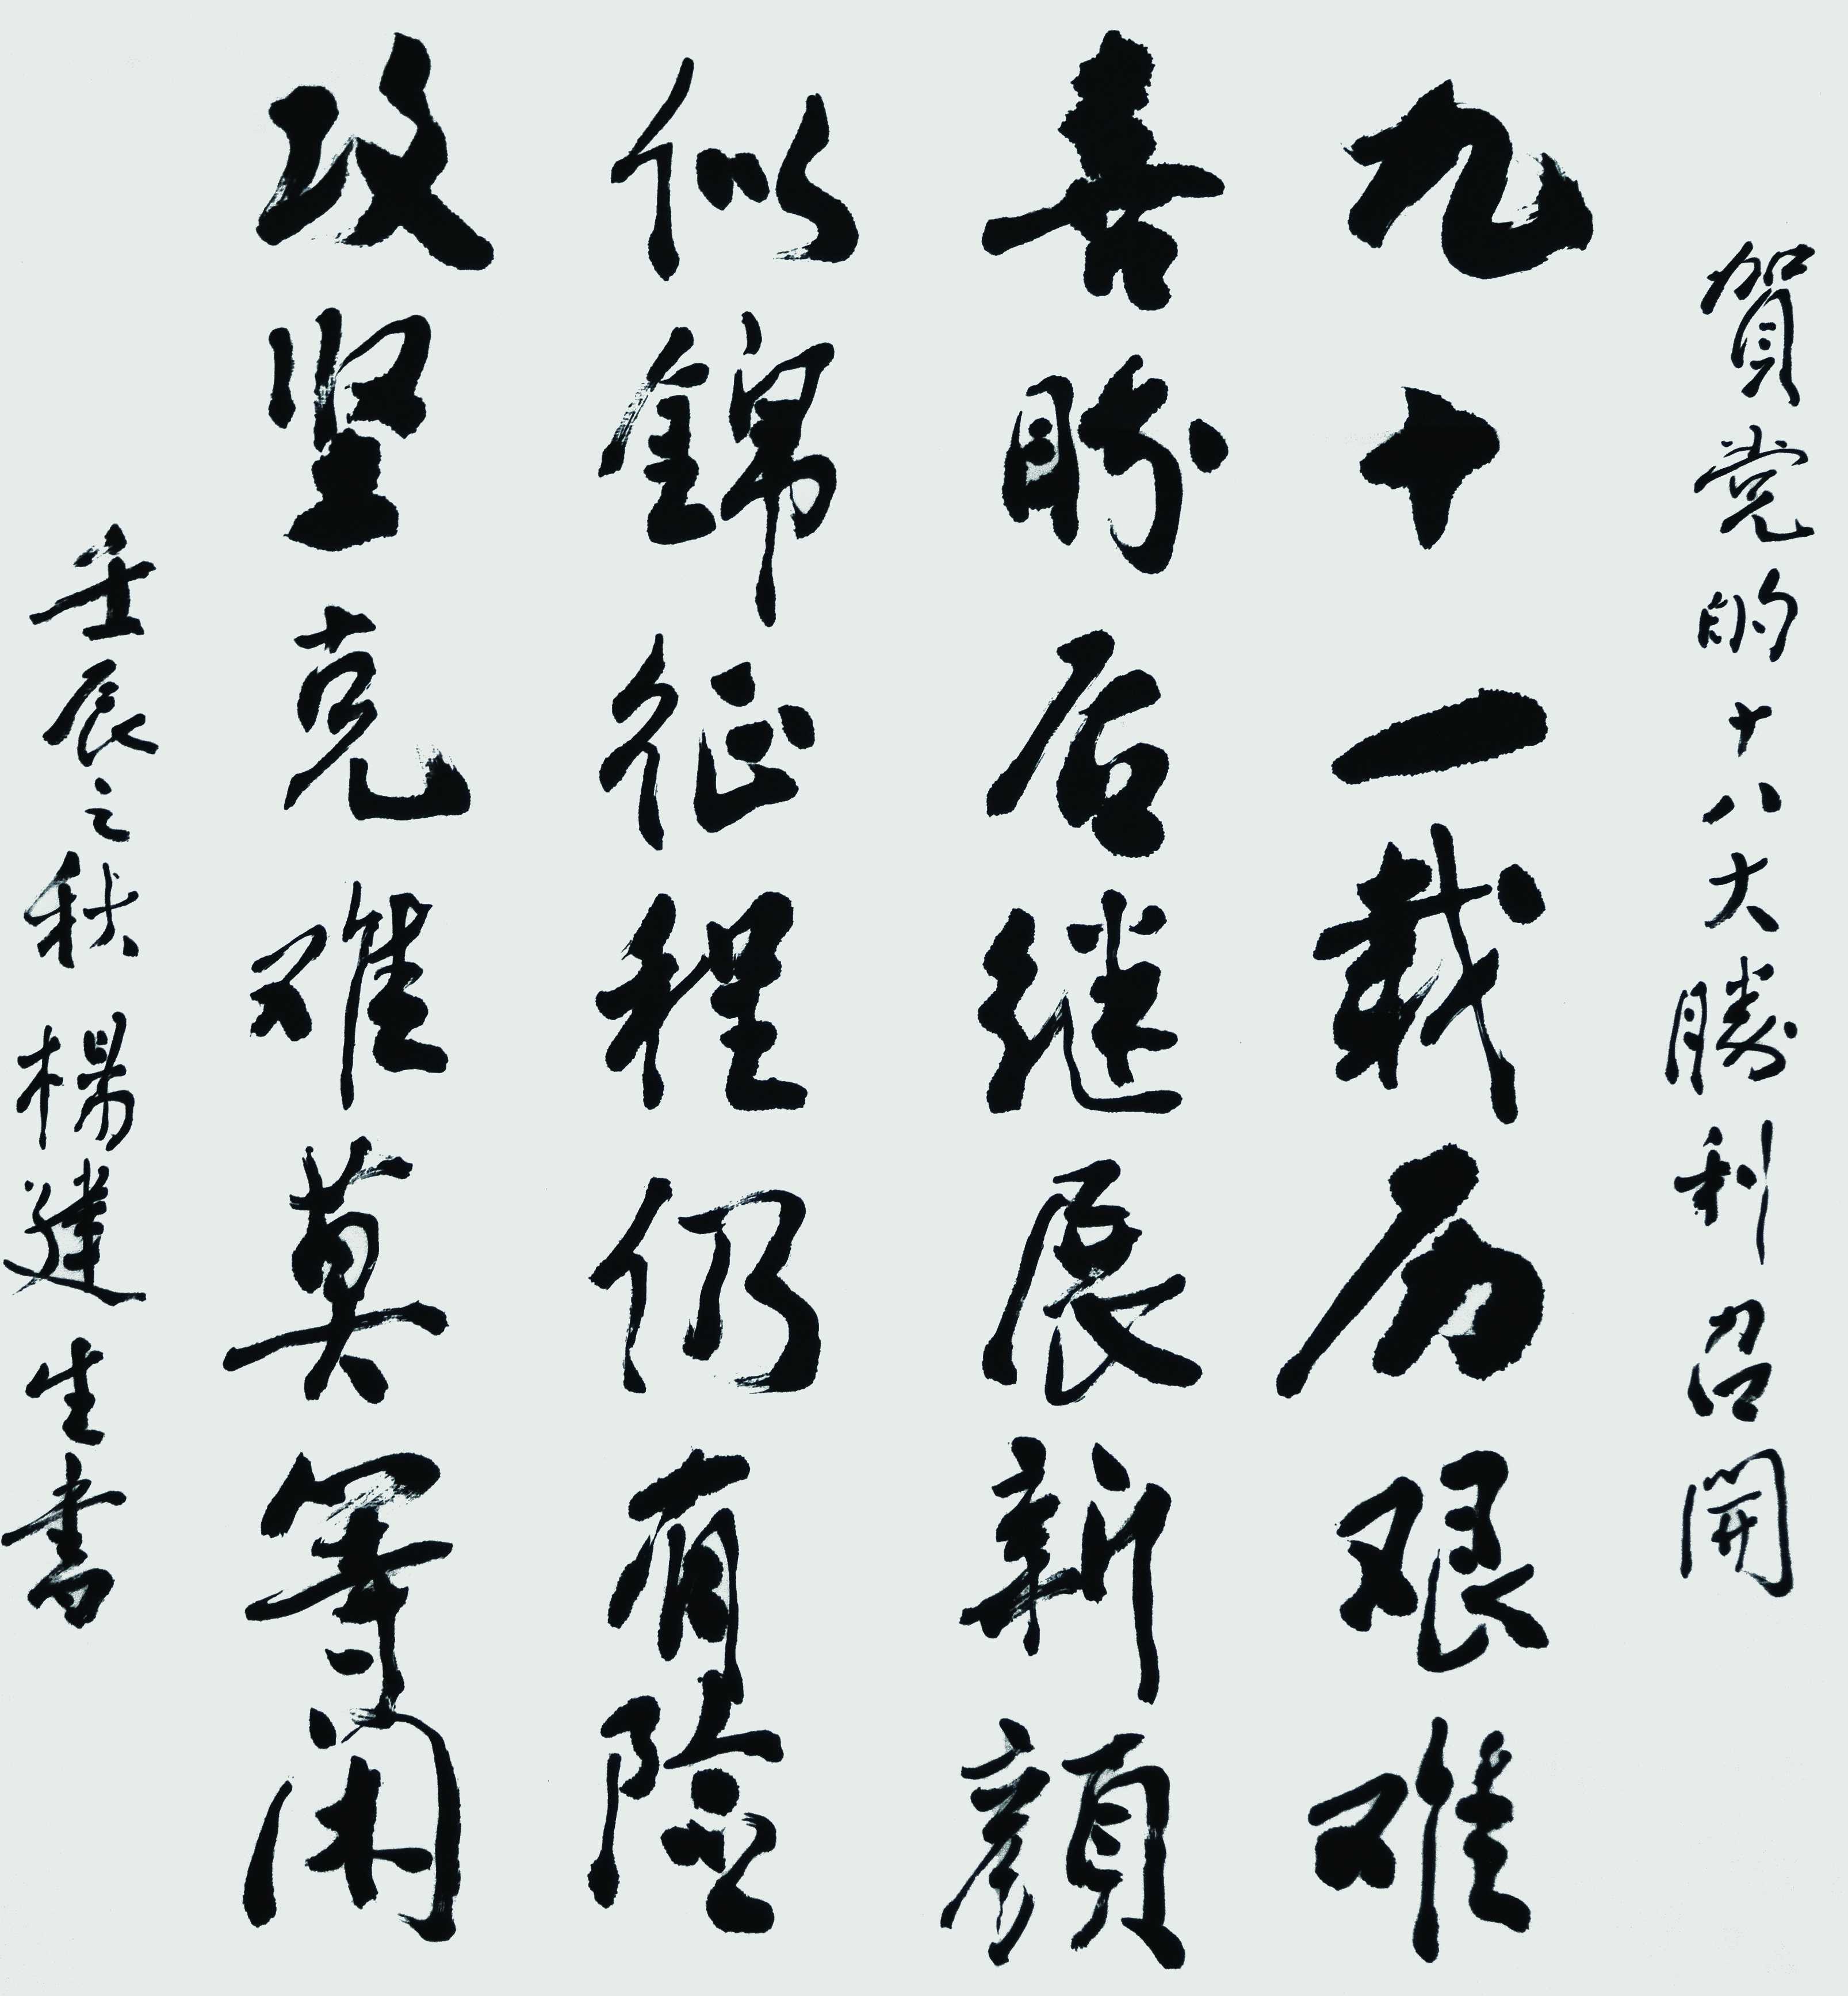 賀党的十八大勝利召開
九十一载历艰难
喜盼后继展新颜
似錦征程仍有险
攻坚克难莫等闲
壬辰之秋 楊建生書